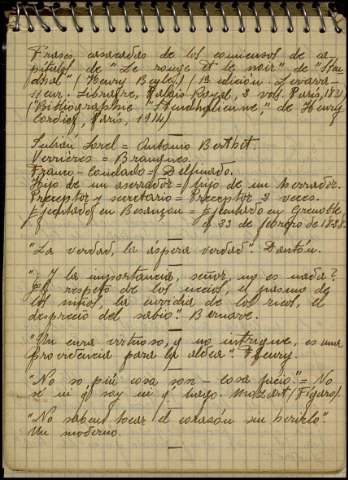 Frases sacadas de los comienzos de ca-
pítulos de "Le rouge et le noir" de "Sten-
dhal" (Henry Beyle) (1ª edición Levavas-
seur, Libraire, Palais Royal, 2 vols. París,
(Bibliographie "Stendhalienne," de Henry
Cordier, París, 1914)
Julián Sorel = Antonio Berthet.
Verrières = Brangues.
Franco-Condado = Delfinado.
Hijo de un aserrador = hijo de un herrador.
Preceptor y secretario = Preceptor 2 veces.
Ejecutado en Besançon = Ejecutado en Grenoble
el 23 de febrero de 1828.
"La verdad, la áspera verdad". Dantón.
"¿Y la importancia, señor, no es nada?
El respeto de los necios, el pasmo de
los niños, la envidia de los ricos, el
desprecio del sabio". Barnave.
"Un cura virtuoso, y no intrigue, es una
providencia para la aldea". Fleury.
"No so più cosa son – cosa facio" = No
sé ni q soy ni q hago. Mozart (Fígaro).
"No saben tocar el corazón sin herirlo"
Un moderno.